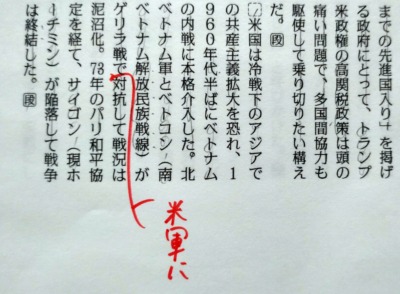 までの先進国入り」を掲げ
る政府にとって、トランプ
米政権の高関税政策は頭の
痛い問題で、多国間協力も
駆使して乗り切りたい構え
だ。㊢
米国は冷戦下のアジアで
の共産主義拡大を恐れ、1
960年代半ばにベトナム
の内戦に本格介入した。北
ベトナム軍とベトコン(南
ベトナム解放民族戦線)が
ゲリラ戦で対抗して戦況は
泥沼化。73年のパリ和平協
定を経て、サイゴン(現ホ
ーチミン)が陥落して戦争
は終結した。
米軍に